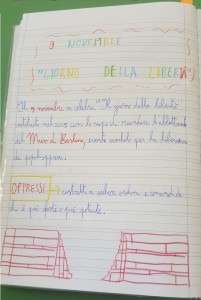 9 NOVEMBRE
"GIORNO DELLA LIBERTÀ"
Il 9 novembre si celebra il giorno della libertà
istituito nel 2005 con lo scopo di ricordare l'abbattimento
del Muro di Berlino, evento simbolo per la liberazione
di popoli oppressi.
OPPRESSI → costretti a subire ordini e comandi da
chi è più forte e più potente.